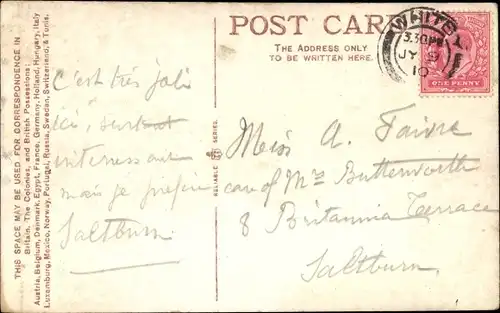 THIS SPACE MAY BE USED FOR CORRESPONDENCE IN
Britain, The Colonies, and British Possessions;
Austria, Belgium, Denmark, Egypt, France, Germany, Holland, Hungary, Italy
Luxemburg, Mexico, Norway, Portugal, Russia, Sweden, Switzerland, & Tunis.
POST CARD
THE ADDRESS ONLY
TO BE WRITTEN HERE.
WHITBY
3.30PM
JY 9
10
ONE PENNY
C'est très joli
ici, surtout
interessant
mais je préfère
Saltburn
RELIABLE SERIES.
Miss A. Faivre
care of Mrs Butterworth
8 Britannia Terrace
Saltburn